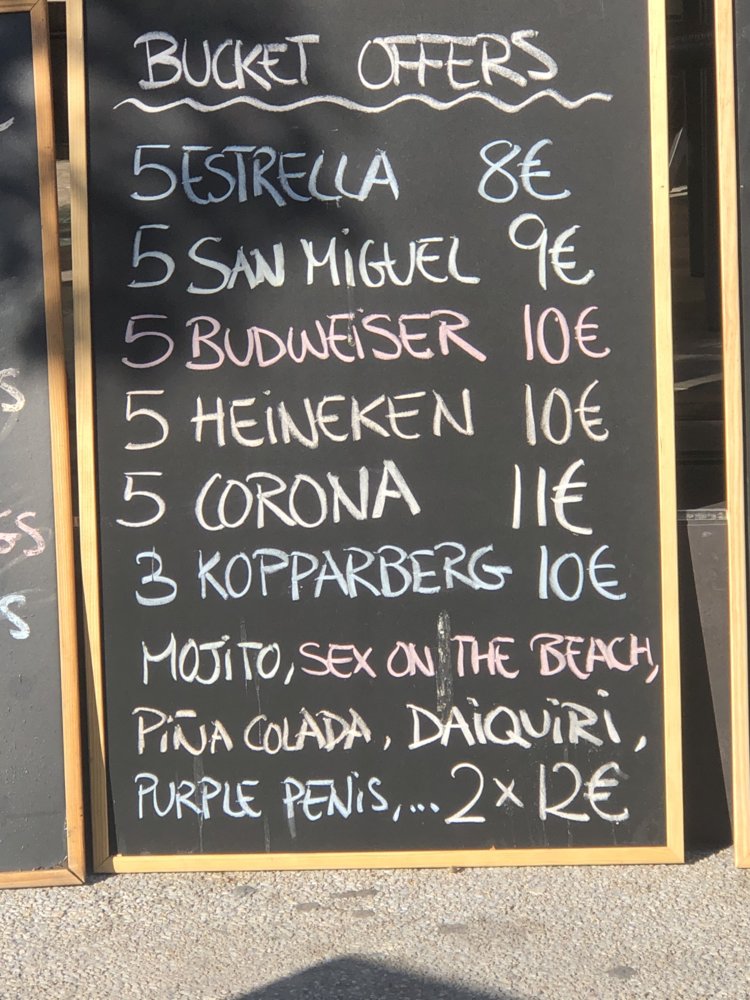 BUCKET OFFERS
5 ESTRELLA 8€
5 SAN MIGUEL 9€
5 BUDWEISER 10€
5 HEINEKEN 10€
5 CORONA 11€
3 KOPPARBERG 10€
MOJITO, SEX ON THE BEACH,
PIÑA COLADA, DAIQUIRI,
PURPLE PENIS,... 2 x 12€